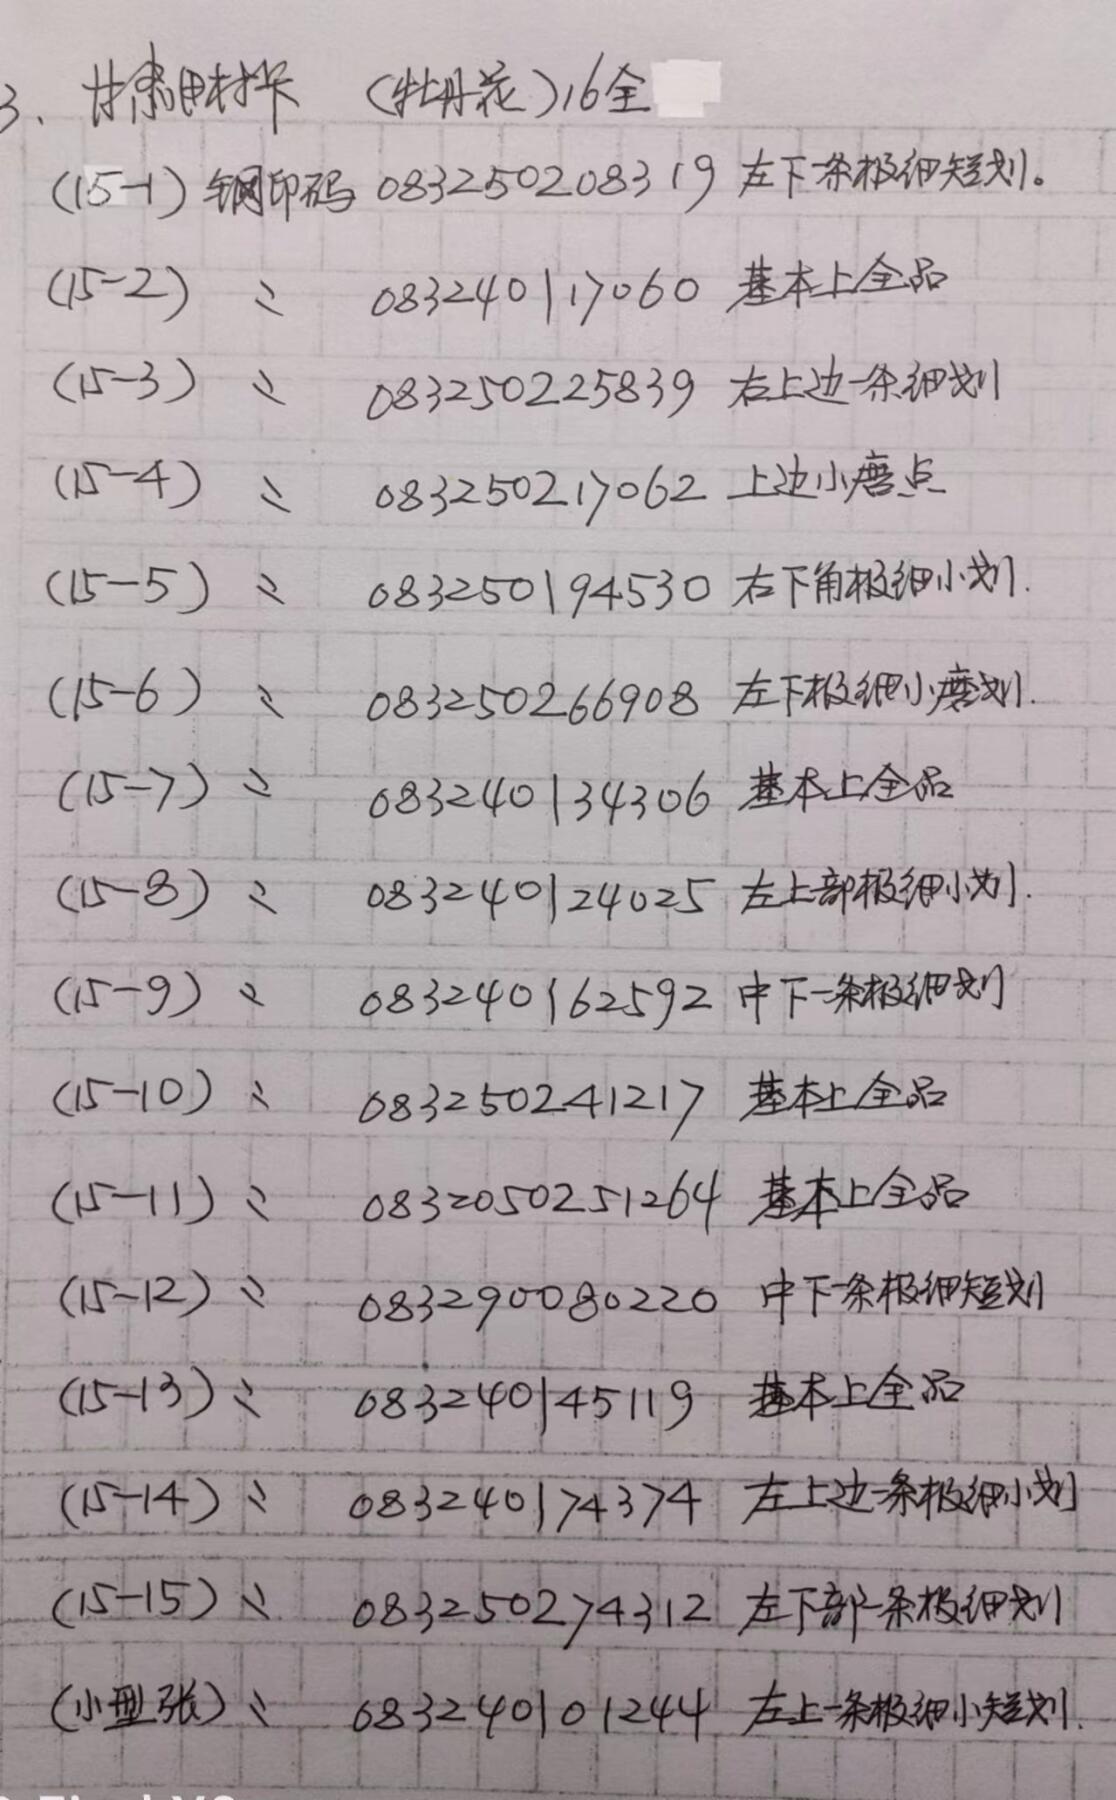 3、甘肃田村卡 (牡丹花)16全
(15-1) 钢印码 083250208319 左下条极细短划。
(15-2) 〃 083240117060 基本上全品
(15-3) 〃 083250225839 右上边一条细划
(15-4) 〃 083250217062 上边小磨点
(15-5) 〃 083250194530 右下角极细小划.
(15-6) 〃 083250266908 左下极细小磨划.
(15-7) 〃 083240134306 基本上全品
(15-8) 〃 083240124025 左上部极细小划.
(15-9) 〃 083240162592 中下一条极细划
(15-10) 〃 083250241217 基本上全品
(15-11) 〃 0832050251264 基本上全品
(15-12) 〃 083290080220 中下一条极细短划
(15-13) 〃 083240145119 基本上全品
(15-14) 〃 083240174374 左上边一条极细小划
(15-15) 〃 083250274312 左下部一条极细划
(小型张) 〃 083240101244 左上一条极细小短划.